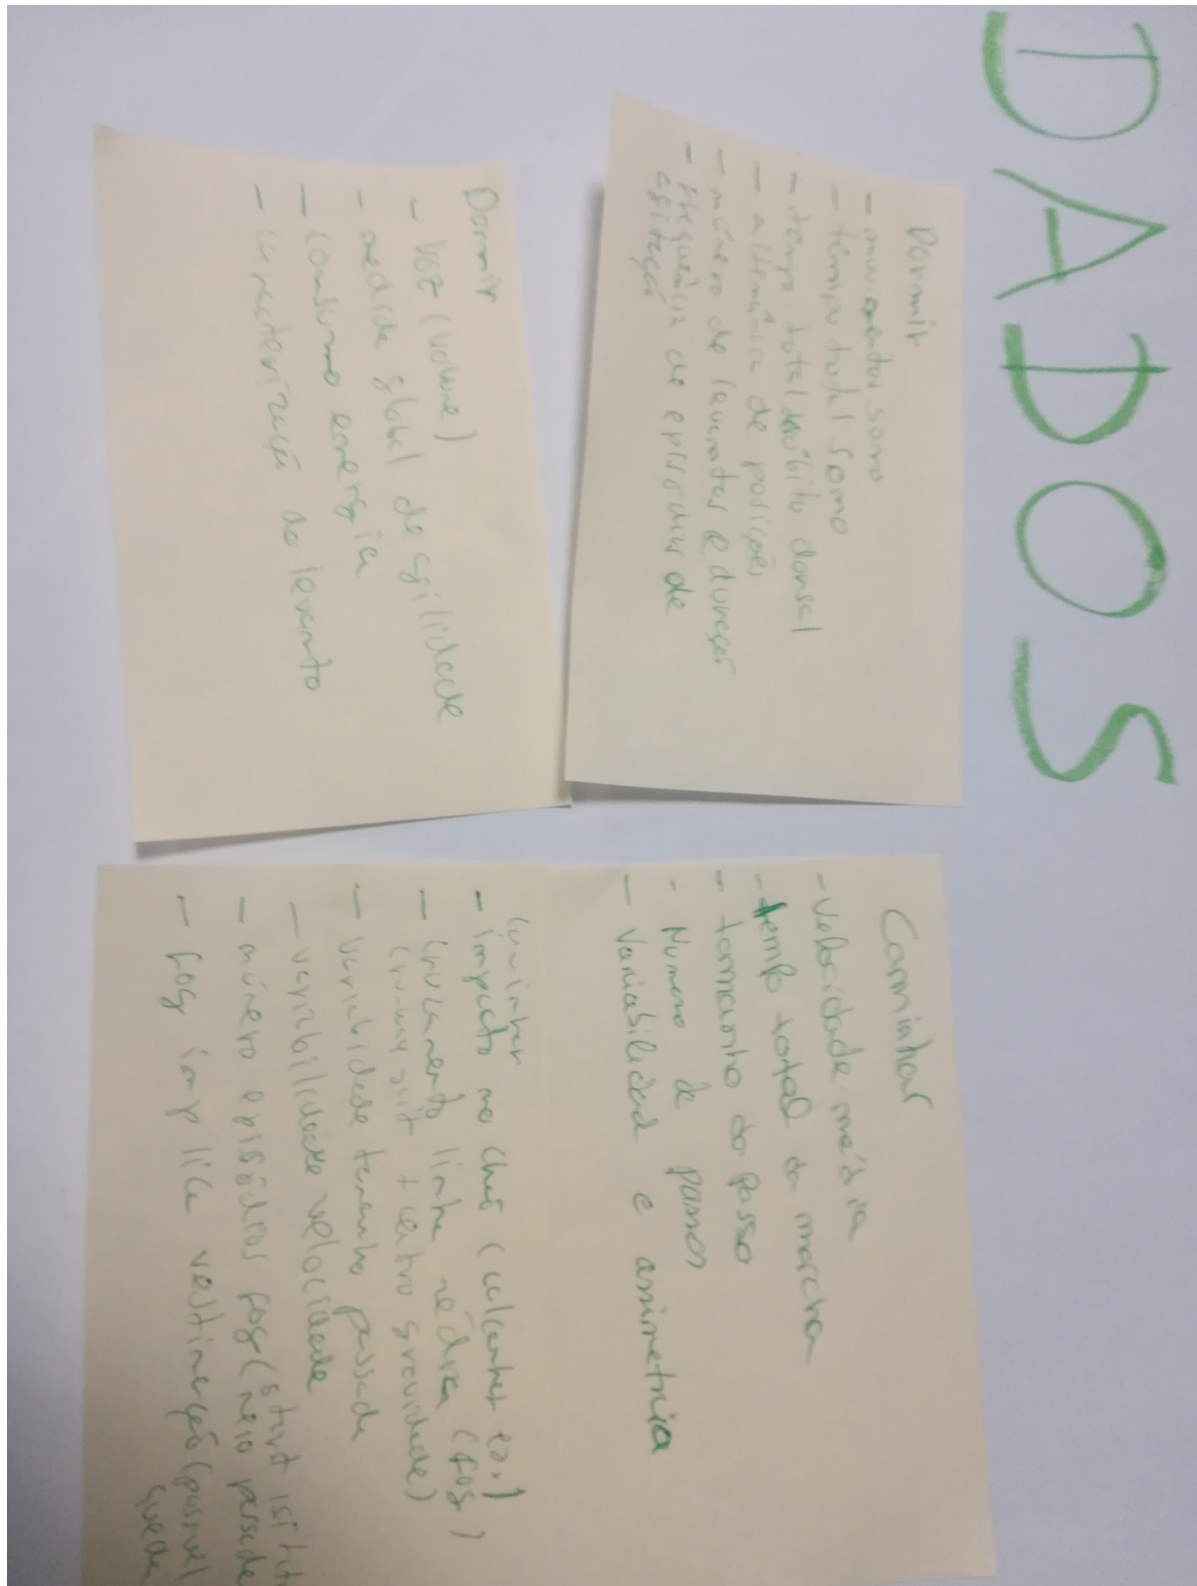 DADOS
Dormir
- movimentos sono
- tempo total sono
- tempo total decúbito dorsal
- alternância de posições
- número de levantadas e duração
- frequência de episódios de
agitação
Dormir
- voz (volume)
- medida global de agilidade
- consumo energia
- caracterização do levanto
Caminhar
- velocidade média
- tempo total da marcha
- tamanho do passo
- Numero de passos
- Variabilidad e assimetria
Caminhar
- impacto no chão (calcanhar
- cruzamento linha média (fog)
gravidade)
- variabidade tamanho passada
- variabilidade velocidade
- número episódios fog (
start
- fog implica (
queda